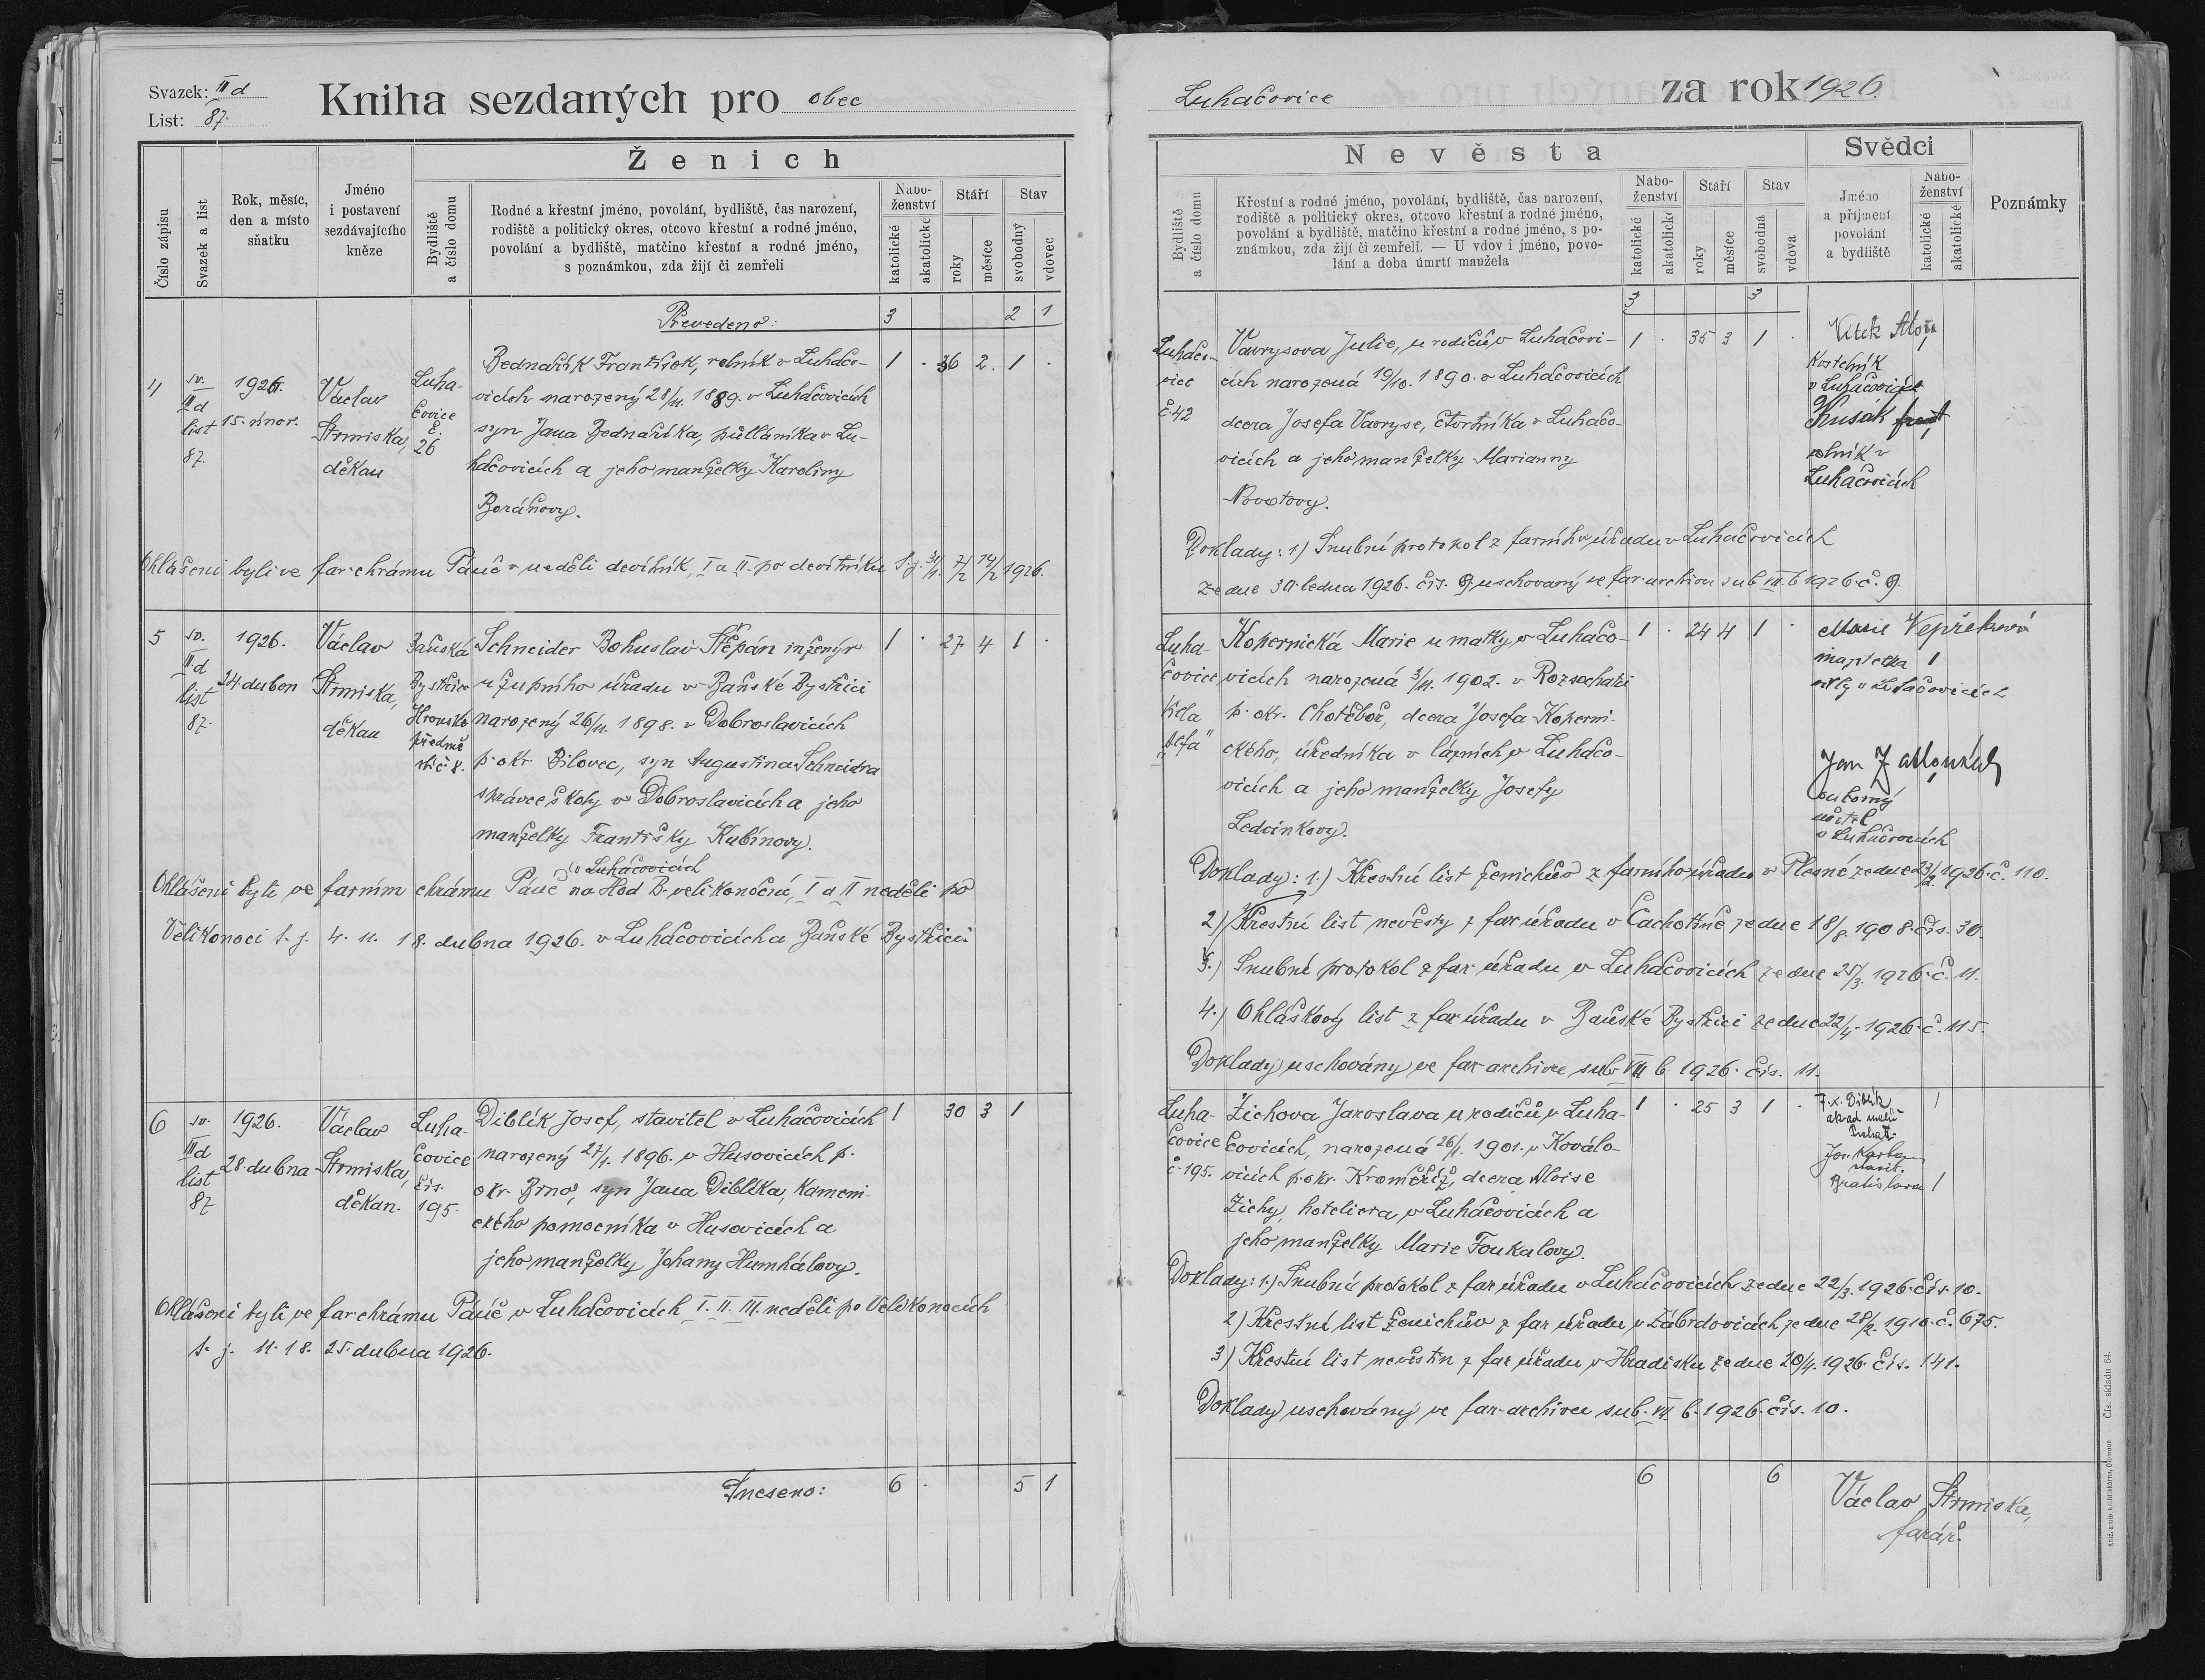 Svazek: III d
List: 87.
Kniha sezdaných pro obec
Číslo zápisu
Svazek a list
Rok, měsíc,
den a místo
sňatku
Jméno
i postavení
sezdávajícího
kněze
Ženich
Bydliště
a číslo domu
Rodné a křestní jméno, povolání, bydliště, čas narození,
rodiště a politický okres, otcovo křestní a rodné jméno,
povolání a bydliště, matčino křestní a rodné jméno,
s poznámkou, zda žijí či zemřeli
Nábo-
ženství
katolické
akatolické
Stáří
roky
měsíce
Stav
svobodný
vdovec
Převedeno: 3 2 1
4
sv.
III d
list
87.
1926.
15. únor.
Václav
Strmiska,
děkan
Luha-
čovice
č.
26
Bednařík František, rolník v Luhačo-
vicích narozený 28/11. 1889. v Luhačovicích
syn Jana Bednaříka, půlláníka v Lu-
hačovicích a jeho manželky Karoliny
Boráňovy.
1 . 36 2. 1 .
Ohlášeni byli ve far. chrámu Páně v neděli devítník, I a II. po devítníku t. j. 31/1. 7/2 14/2 1926.
5
sv.
III d
list
87.
1926.
24. dubon
Václav
Strmiska,
děkan
Baňská
Bystřice
Hronské
předmě
stí č 8.
Schneider Bohuslav Štěpán inženýr
u župního úřadu v Baňské Bystřici
narozený 26/11. 1898. v Dobroslavicích
p. okr. Bílovec, syn Augustina Schneidra
správce školy v Dobroslavicích a jeho
manželky Františky Kubínovy.
1 . 27 4 1 .
v Luhačovicích
Ohlášeni byli ve farním chrámu Páně na Hod B. velikonoční, I a II neděli po
Velikonoci t. j. 4. 11. 18. dubna 1926. v Luhačovicích a Baňské Bystřici.
6
sv.
III d
list
87
1926.
28. dubna
Václav
Strmiska,
děkan.
Luha-
čovice
čís.
195.
Diblík Josef, stavitel v Luhačovicích
narozený 27/1. 1896. v Husovicích p.
okr. Brno, syn Jana Diblíka, kameni-
ckého pomocníka v Husovicích a
jeho manželky Johany Humhálovy.
1 30 3 1
Ohlášeni byli ve far. chrámu Páně v Luhačovicích I. II. III. neděli po Velikonocích
t. j. 11. 18. 25. dubna 1926.
Sneseno: 6 . 5 1
Luhačovice za rok 1926.
Nevěsta
Bydliště
a číslo domu
Křestní a rodné jméno, povolání, bydliště, čas narození,
rodiště a politický okres, otcovo křestní a rodné jméno,
povolání a bydliště, matčino křestní a rodné jméno, s po-
známkou, zda žijí či zemřeli. — U vdov i jméno, povo-
lání a doba úmrtí manžela
Nábo-
ženství
katolické
akatolické
Stáří
roky
měsíce
Stav
svobodná
vdova
Svědci
Jméno
a příjmení
povolání
a bydliště
Nábo-
ženství
katolické
akatolické
Poznámky
3 3
Luhačo-
vice
č. 42
Vavrysova Julie, u rodičů v Luhačovi-
cích narozená 19/10. 1890. v Luhačovicích
dcera Josefa Vavryse, čtvrtníka v Luhačo-
vicích a jeho manželky Marianny
Novotovy.
1 . 35 3 1 .
Vítek Alois
kostelník
v Luhačovicích
Husák frant
rolník v
Luhačovicích
Doklady: 1) Snubní protokol z farního úřadu v Luhačovicích
ze dne 30. ledna 1926. čís. 9 uschovaný ve far. archivu sub VII. b 1926 č. 9.
Luha-
čovice
vila
„Alfa"
Kopernická Marie u matky v Luhačo-
vicích narozená 3/11. 1902. v Rozsochatci
p. okr. Chotěboř, dcera Josefa Koperni-
ckého, úředníka v lázních v Luhačo-
vicích a jeho manželky Josefy
Ledvinkovy.
1 . 24 4 1 .
Marie Vepřeková
majitelka 1
vily v Luhačovicích
Jan
odborný
učitel
v Luhačovicích
Doklady: 1.) Křestní list ženichův z farního úřadu v Plesné ze dne 23/2. 1926. č. 110.
2) Křestní list nevěsty z far. úřadu v Čachotíně ze dne 18/8. 1908. čís. 30.
3.) Snubní protokol z far. úřadu v Luhačovicích ze dne 25/3. 1926. č. 11.
4.) Ohláškový list z far. úřadu v Baňské Bystřici ze dne 22/4. 1926. č. 115.
Doklady uschovány ve far. archivu sub VII b. 1926. čís. 11.
Luha-
čovice
č. 195.
Zichova Jaroslava u rodičů v Luha-
čovicích, narozená 26/1. 1901. v Koválo-
vicích p. okr. Kroměříž, dcera Aloise
Zichy, hoteliera v Luhačovicích a
jeho manželky Marie Foukalovy.
1 . 25 3 1 .
F. X. Diblík 1
akad. malíř
Jos.
stavit.
Bratislava 1
Doklady: 1.) Snubní protokol z far. úřadu v Luhačovicích ze dne 22/3. 1926. čís. 10.
2) Křestní list ženichův z far. úřadu v Zábrdovicích ze dne 28/2. 1910. č. 675.
3) Křestní list nevěstin z far. úřadu v Hradisku ze dne 20/4. 1926. čís. 141.
Doklady uschovány ve far. archivu sub. VII. b. 1926. čís. 10.
6 6
Václav Strmiska,
farář.
Kniž. arcib. knihtiskárna, Olomouc — Čís. skladu 64.